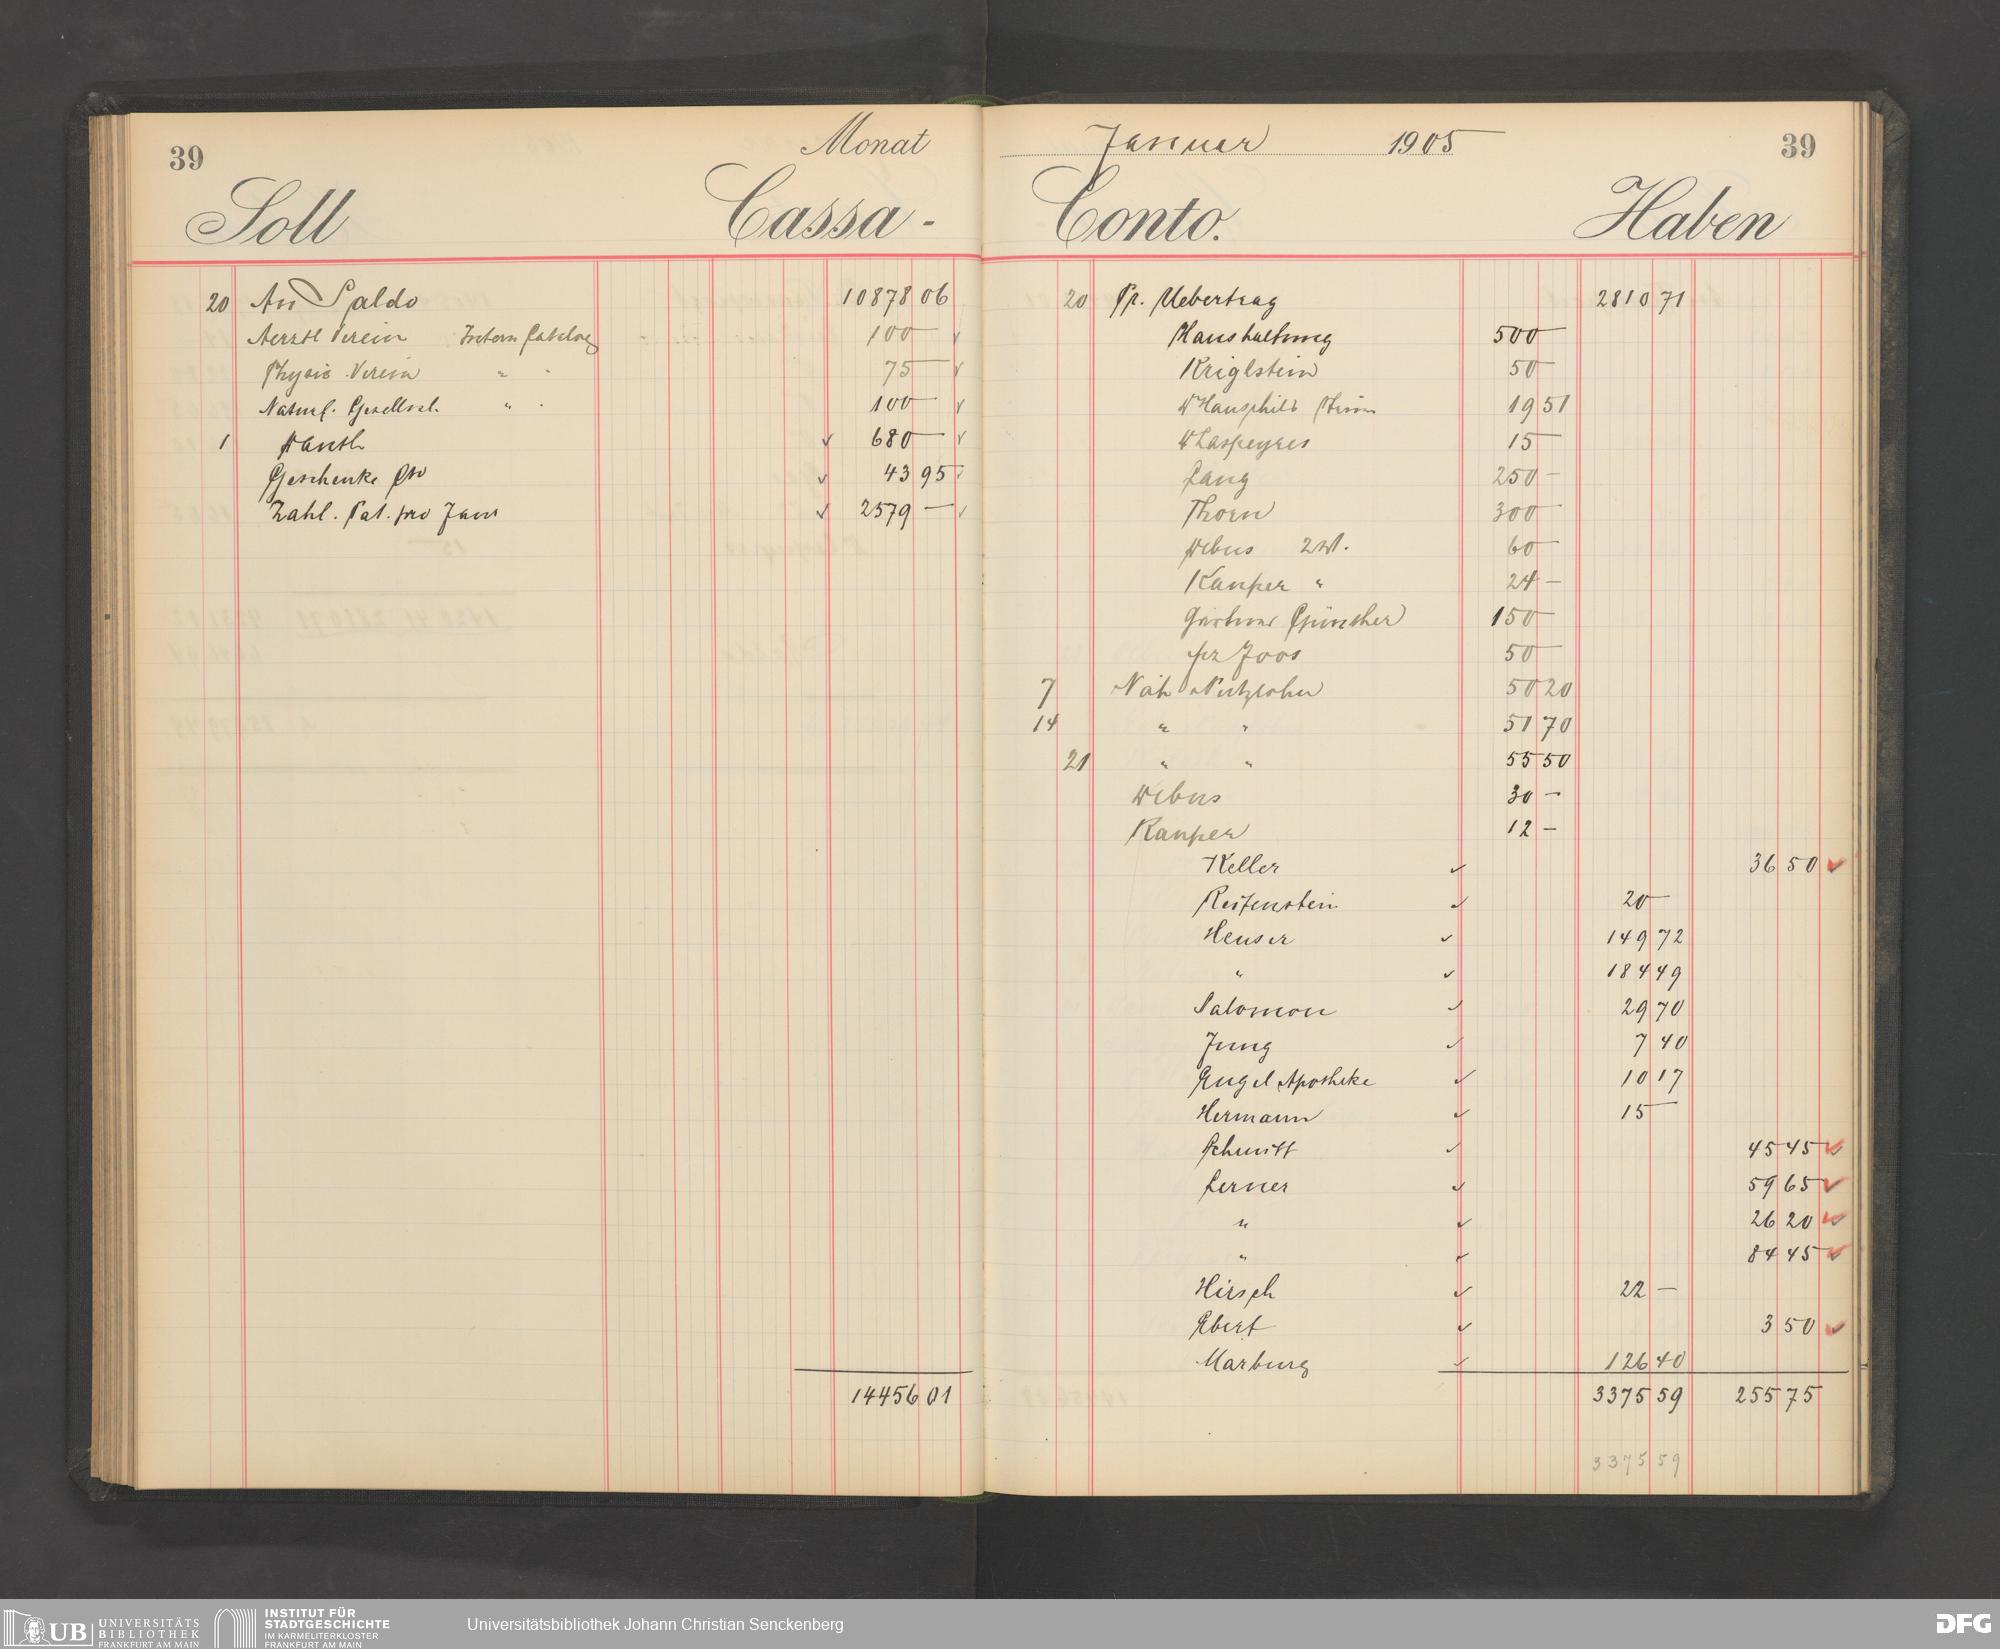 39 Monat
Soll Cassa-
20 An Saldo 10878 06
Aerztl Verein 100 —
Physic. Verein " " 75 —
Naturf. Gesellsch. " " 100 —
1 680 —
Geschenke Cto 43 95
Zahl. Pat. pro Janr 2579 —
14456 01
Januar 1905 39
Conto. Haben
20 Pr. Uebertrag 2810 71
Haushaltung 500 —
Kriglstein 50 —
19 51
Laspeyres 15 —
Lang 250 —
Thorn 300 —
Debus 60 —
24 —
Günther 150 —
Joos 50 —
7 50 20
14 " " 51 70
21 " " 55 50
Debus 30 —
12 —
Keller 36 50
Reifenstein 20 —
Heuser 149 72
" 184 49
Salomon 29 70
Jung 7 40
Engel Apotheke 10 17
Hermann 15 —
Schmitt 45 45
Lerner 59 65
" 26 20
" 84 45
Hirsch 22 —
Ebert 3 50
Marburg 126 40
3375 59 255 75
3375 59
UB UNIVERSITÄTS
BIBLIOTHEK
FRANKFURT AM MAIN
INSTITUT FÜR
STADTGESCHICHTE
IM KARMELITERKLOSTER
FRANKFURT AM MAIN
Universitätsbibliothek Johann Christian Senckenberg
DFG